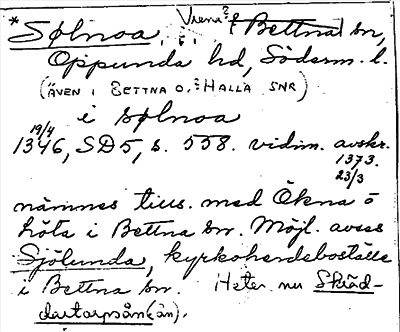 *Sølnoa, i Vrena? f Bettna sn,
Oppunda hd, Söderm. l.
(ÄVEN I BETTNA O. ? HALLA SNR)
i sølnoa
19/4
1346, SD5, s. 558. vidim. avskr.
1373.
23/3
nämnes tills. med Ökna ö
höta i Bettna sn. Möjl. avses
Sjölunda, kyrkoherdeboställe
i Bettna sn. Heter nu Skräd-
dartorpsån(-ån).